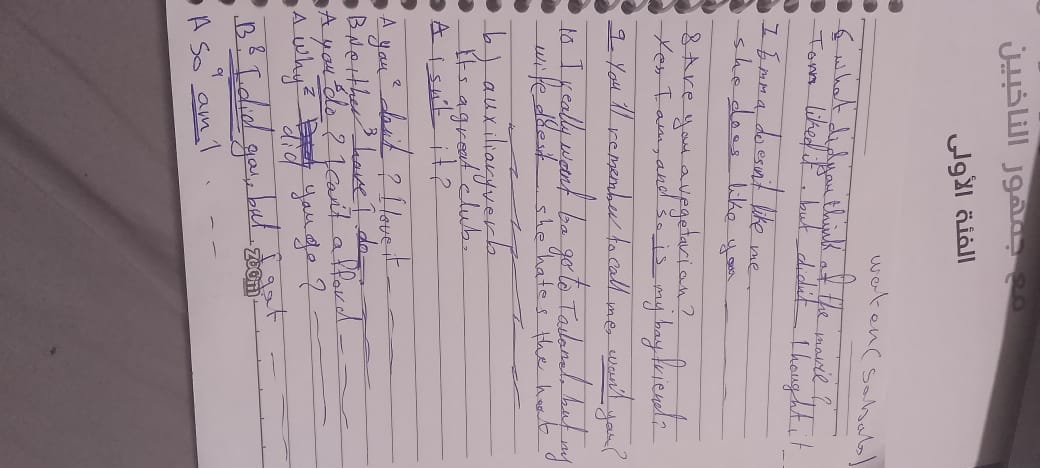 مع جمهور الناخبين
الفئة الأولى
6 what did you think of the movie?
Tom liked it, but didn't I thought it
7 Emma doesn't like me.
she does like you
8 Are you a vegetarian?
Yes I am, and so is my boyfriend?
9 You'll remember to call me, won't you?
10 I really want to go to but my
wife doesn't. she hates the heat
b) auxiliary verb
It's a great club.
A isn't it?
A you² don't? I love it
B Neither³ have⁴ I do
A you⁵ do? I can't afford
A Why² did you go?
B⁸ I did go, but I got
zoom
A So⁹ am I